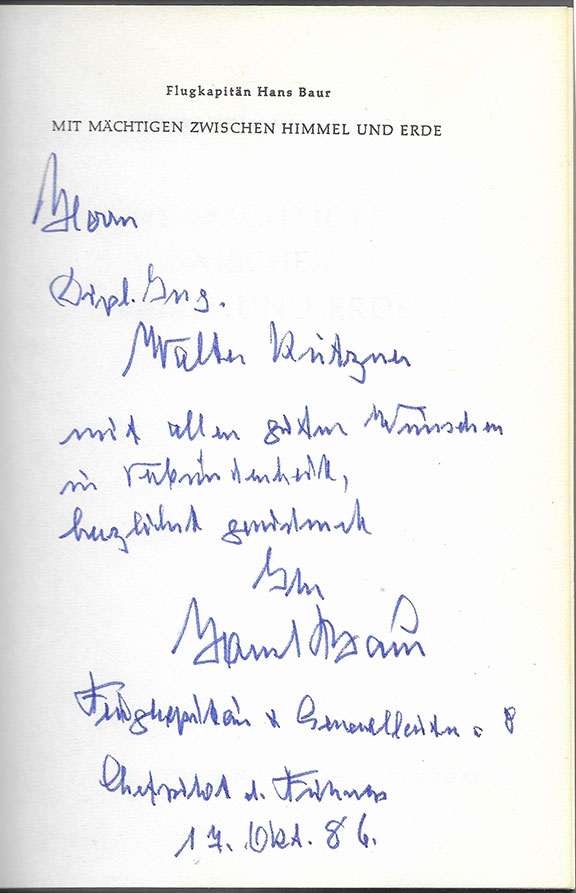 Flugkapitän Hans Baur
MIT MÄCHTIGEN ZWISCHEN HIMMEL UND ERDE
Herrn
Dipl. Ing.
Walter Kutzner
mit allen guten Wünschen
in Verbundenheit,
herzlichst gewidmet
Ihr
Hans Baur
Flugkapitän u Generalleutn a D
Chefpilot d. Führers
17. Okt. 86.